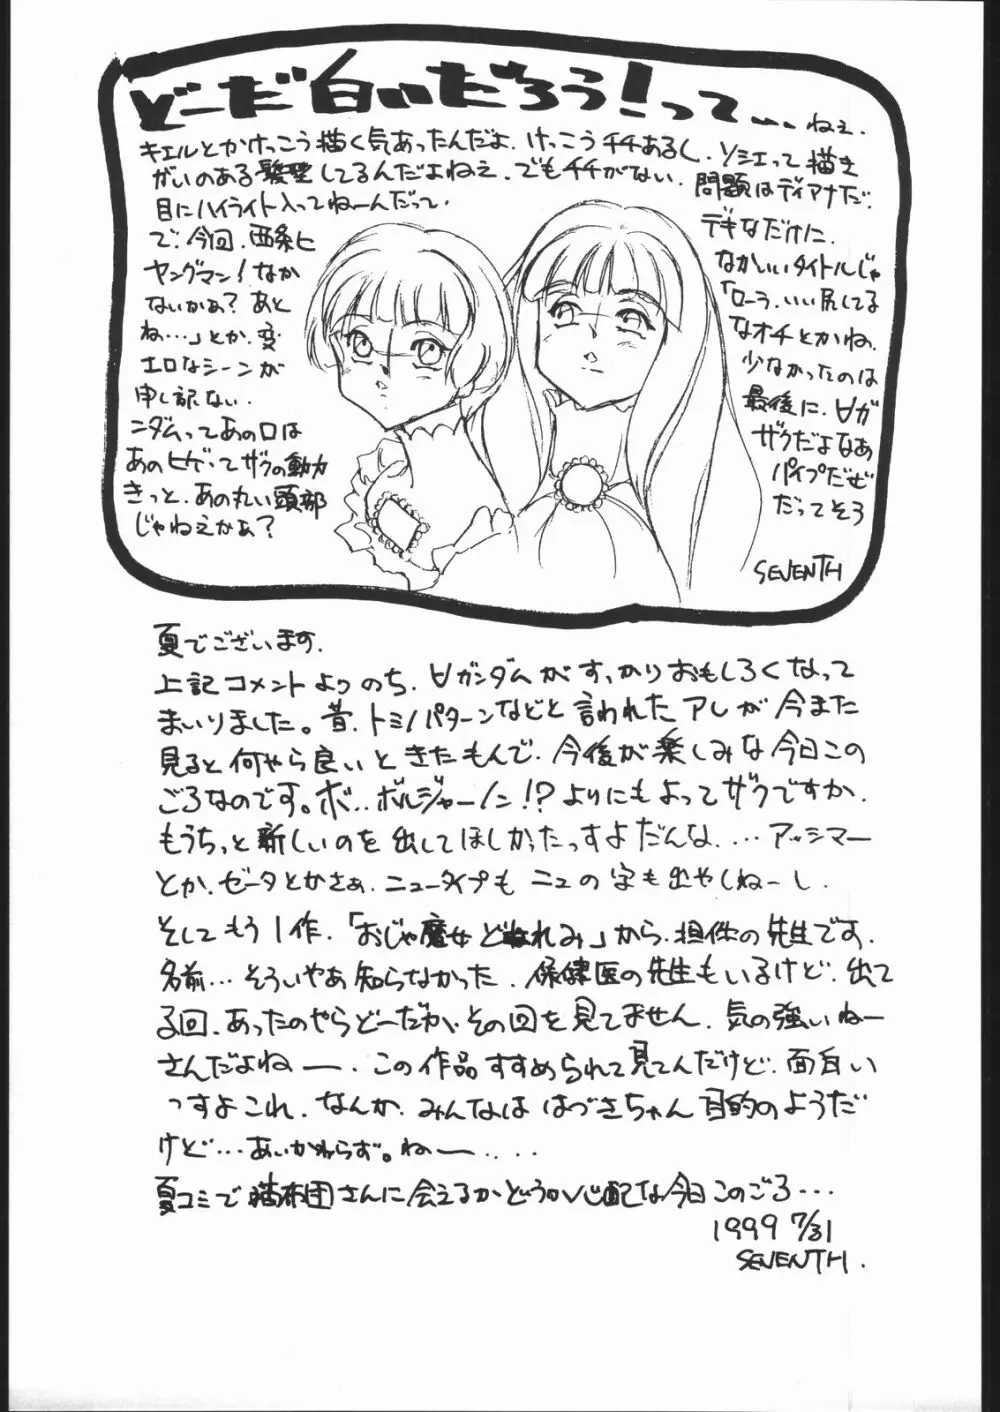 どーだ白いだろう!って…ねぇ.
キエルとかけっこう描く気あったんだよ.けっこうチチあるし.ソシエって描き
がいのある髪型してるんだよねぇ.でもチチがない.問題はディアナだ.
目にハイライト入ってねーんだって.
デキなだけに.
で.今回.西条ヒ
なかいいタイトルじゃ
ヤングマン!なか
「ローラ.いい尻してる
ないかぁ?あと
なオチとかね.
ね…」とか.変
少なかったのは
エロなシーンが
最後に.∀ガ
申し訳ない.
ザクだよなあ
ンダムってあの口は
パイプだぜ
あのヒゲってザクの動力
だってそう
きっと.あの丸い頭部
じゃねえかぁ?
SEVENTH
夏でございます.
上記コメントよりのち.∀ガンダムがすっかりおもしろくなって
まいりました。昔.トミノパターンなどと言われたアレが今また
見ると何やら良いときたもんで.今後が楽しみな今日この
ごろなのです。ボ..ボルジャーノン!?よりにもよってザクですか.
もうちっと新しいのを出してほしかったっすよだんな....アッシマー
とか.ゼータとかさぁ.ニュータイプもニュの字も出やしねーし.
そしてもう1作.「おじゃ魔女どれみ」から.担任の先生です.
名前...そういやぁ知らなかった.保健医の先生もいるけど.出て
る回.あったのやらどーだか.その回を見てません.気の強いねー
さんだよねー.この作品すすめられて見てんだけど.面白い
っすよこれ.なんか.みんなははづきちゃん目的のようだ
けど...あいかわらず。ねー....
夏コミで猫布団さんに会えるかどうか心配な今日このごろ...
1999 7/31
SEVENTH.